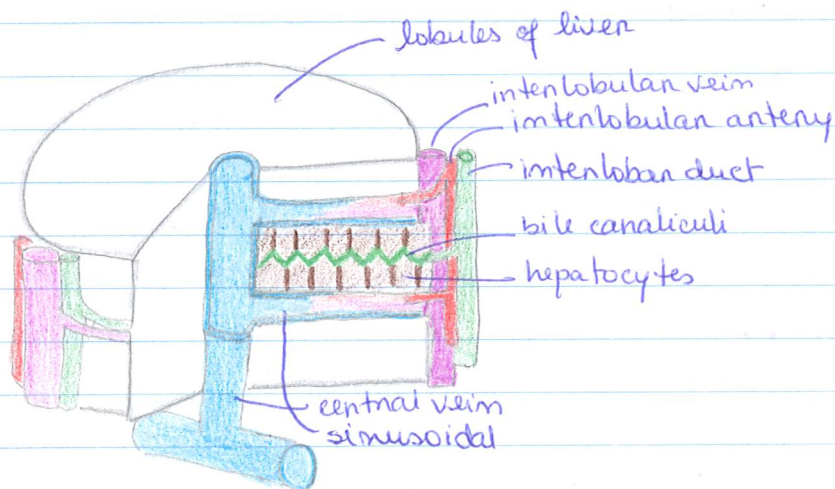 lobules of liver
interlobular vein
interlobular artery
interlobar duct
bile canaliculi
hepatocytes
central vein
sinusoidal